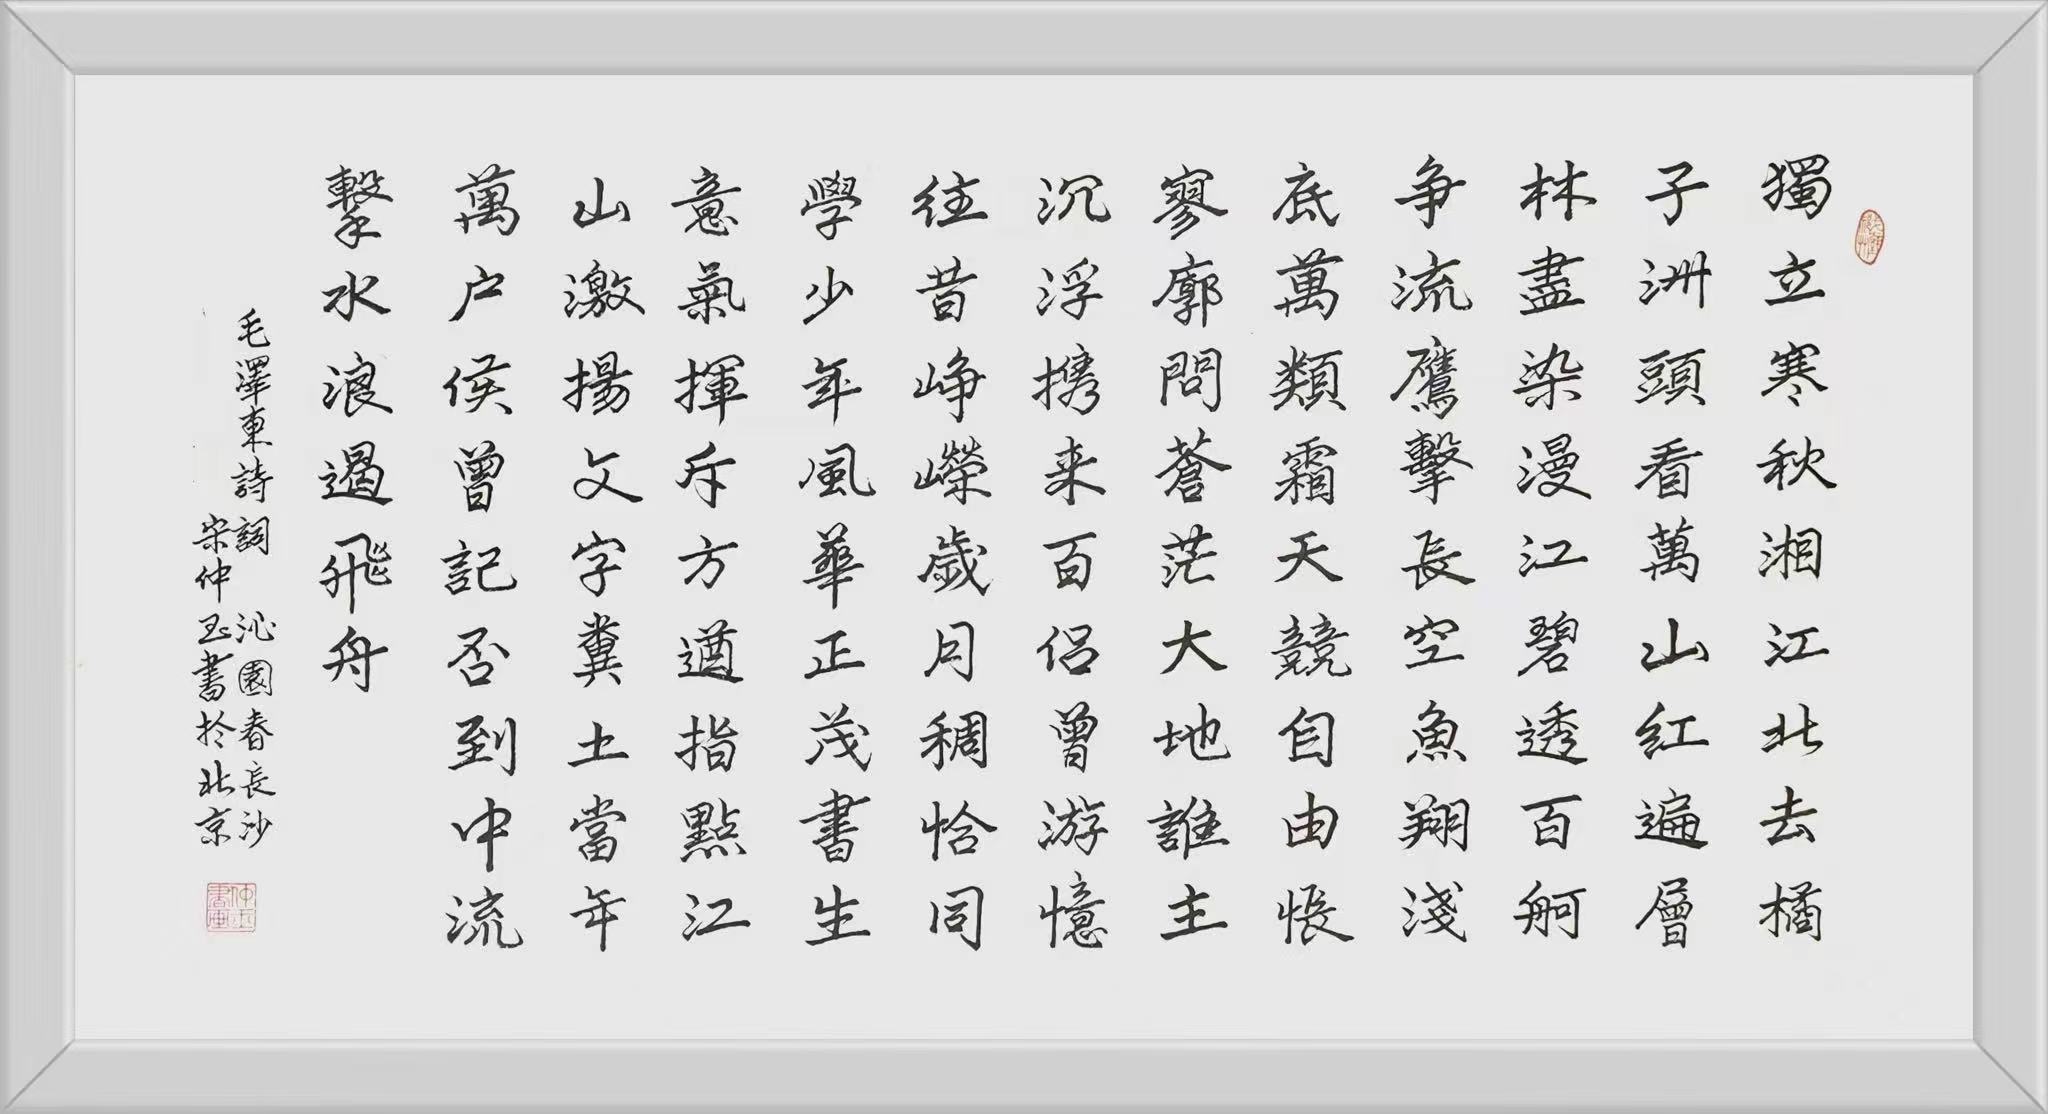 獨立寒秋湘江北去橘
子洲頭看萬山紅遍層
林盡染漫江碧透百舸
争流鷹擊長空魚翔淺
底萬類霜天競自由悵
寥廓問蒼茫大地誰主
沉浮携来百侣曾游憶
往昔峥嶸歲月稠恰同
學少年風華正茂書生
意氣揮斥方遒指點江
山激揚文字糞土當年
萬户侯曾記否到中流
擊水浪遏飛舟
毛澤東詩詞 沁園春長沙
宋仲玉書於北京
仲玉書畫